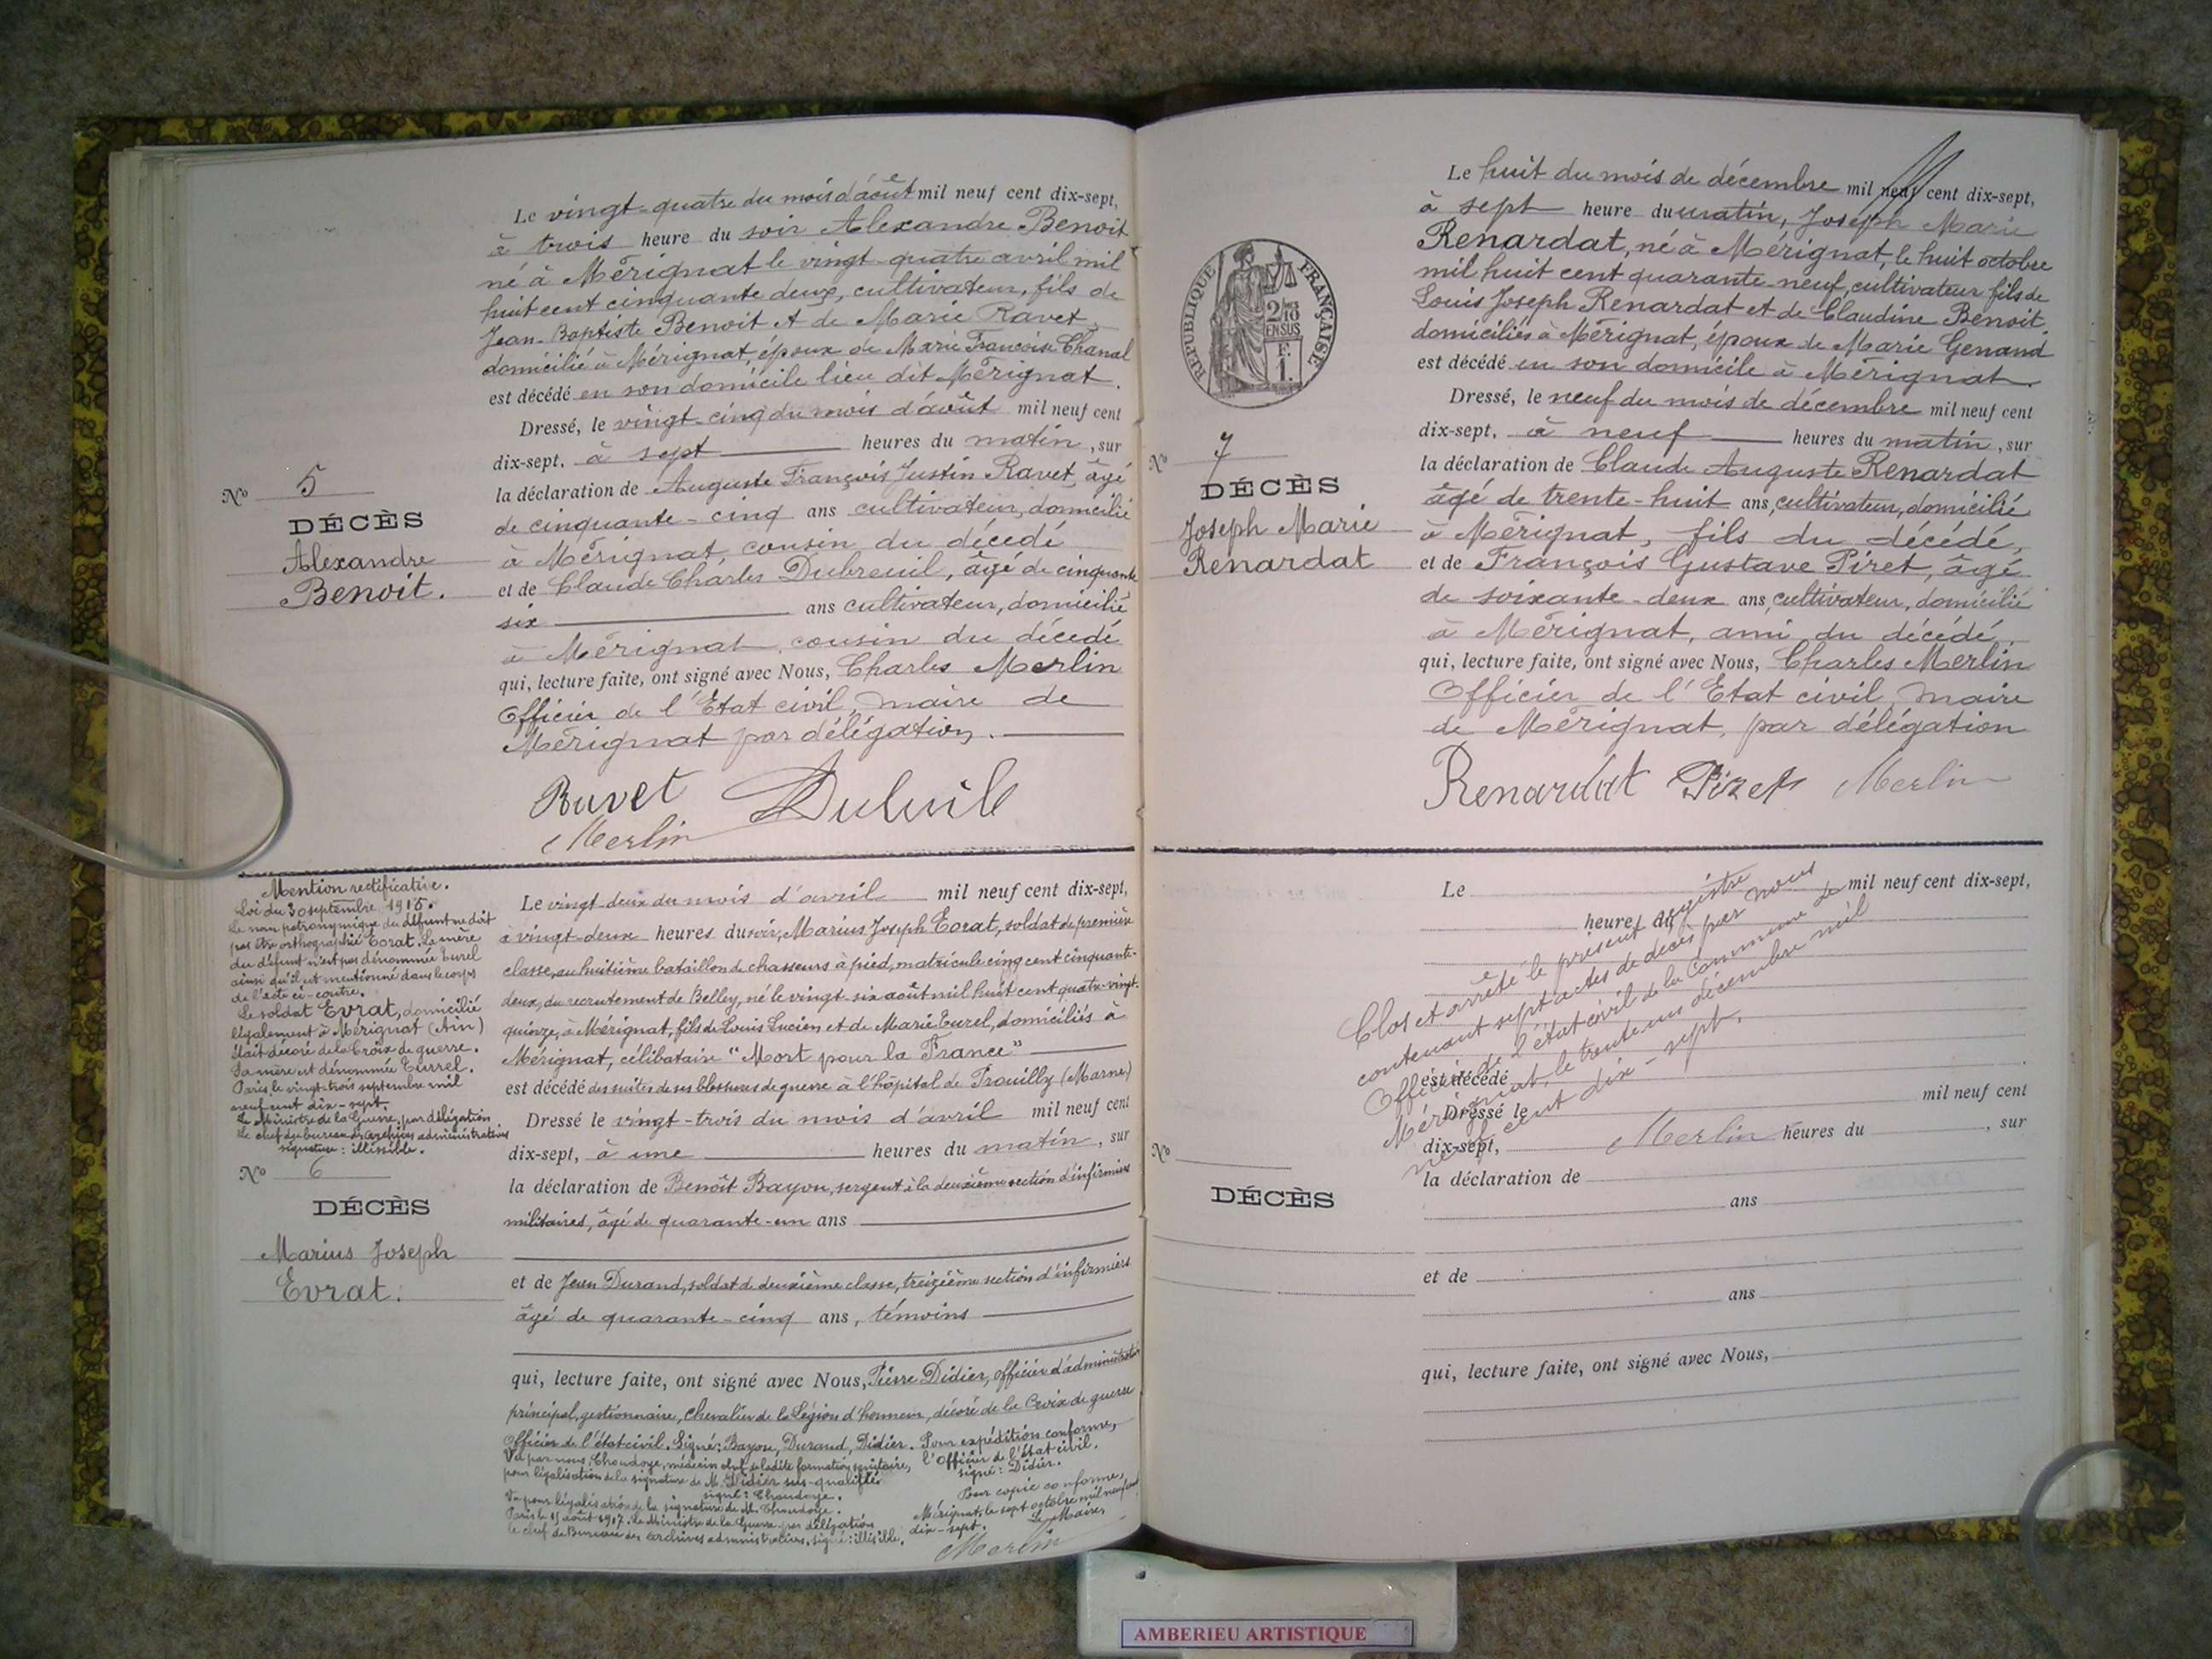 Le vingt-quatre du mois d'août mil neuf cent dix-sept,
à trois heure du soir Alexandre Benoit
né à Mérignat le vingt-quatre avril mil
huit cent cinquante deux, cultivateur, fils de
Jean-Baptiste Benoit et de Marie Ravet
domicilié à Mérignat, époux de Marie Françoise Chanal
est décédé en son domicile lieu dit Mérignat.
Dressé, le vingt-cinq du mois d'août mil neuf cent
dix-sept, à sept heures du matin, sur
la déclaration de Auguste François Justin Ravet, âgé
de cinquante-cinq ans cultivateur, domicilié
à Mérignat, cousin du décédé
et de Claude Charles Dubreuil, âgé de cinquante
six ans cultivateur, domicilié
à Mérignat, cousin du décédé
qui, lecture faite, ont signé avec Nous, Charles Merlin
Officier de l'Etat civil, maire de
Mérignat par délégation.
Ravet Dubreuil
Merlin
No 5
DÉCÈS
Alexandre
Benoit.
Mention rectificative.
Loi du 30 septembre 1915.
Le nom patronymique du défunt ne doit
pas être orthographié Eorat. La mère
du défunt n'est pas dénommée Eurel
ainsi qu'il est mentionné dans le corps
de l'acte ci-contre.
Le soldat Evrat, domicilié
légalement à Mérignat (Ain)
était décoré de la Croix de guerre.
Sa mère est dénommée
Paris, le vingt-trois septembre mil
neuf cent dix-sept.
Le Ministre de la Guerre, par délégation
Le chef du bureau des archives administratives
signature: illisible.
No 6
DÉCÈS
Marius Joseph
Evrat.
Le vingt deux du mois d'avril mil neuf cent dix-sept,
à vingt-deux heures du soir, Marius Joseph Eorat, soldat de première
classe, au huitième bataillon de chasseurs à pied, matricule cinq cent cinquante-
deux, du recrutement de Belley, né le vingt-six août mil huit cent quatre-vingt-
quinze, à Mérignat, fils de Louis Lucien et de Marie Eurel, domiciliés à
Mérignat, célibataire "Mort pour la France"
est décédé des suites de ses blessures de guerre à l'hôpital de Prouilly (Marne)
Dressé le vingt-trois du mois d'avril mil neuf cent
dix-sept, à une heures du matin, sur
la déclaration de Benoît Bayon, sergent à la deuxième section d'infirmiers
militaires, âgé de quarante-un ans
et de Jean Durand, soldat de deuxième classe, treizième section d'infirmiers
âgé de quarante-cinq ans, témoins
qui, lecture faite, ont signé avec Nous, Pierre Didier, officier d'administration
principal, gestionnaire, Chevalier de la Légion d'honneur, décoré de la Croix de guerre
Officier de l'état civil. Signé: Bayon, Durand, Didier. Pour expédition conforme,
l'Officier de l'état civil.
signé: Didier.
Vu par nous, Choudoye, médecin chef de ladite formation sanitaire,
pour légalisation de la signature de M. Didier sus-qualifié
signé: Choudoye.
Vu pour légalisation de la signature de M. Choudoye.
Paris le 15 août 1917. Le Ministre de la Guerre par délégation
le chef de Bureau des archives administratives, signé: illisible.
Pour copie conforme,
Mérignat, le sept octobre mil neuf cent
dix-sept. Le Maire,
Merlin
REPUBLIQUE FRANÇAISE
2/10
EN SUS
F.
1.
Le huit du mois de décembre mil neuf cent dix-sept,
à sept heure du matin, Joseph Marie
Renardat, né à Mérignat, le huit octobre
mil huit cent quarante-neuf, cultivateur fils de
Louis Joseph Renardat et de Claudine Benoit,
domiciliés à Mérignat, époux de Marie Genand
est décédé en son domicile à Mérignat.
Dressé, le neuf du mois de décembre mil neuf cent
dix-sept, à neuf heures du matin, sur
la déclaration de Claude Auguste Renardat
âgé de trente-huit ans, cultivateur, domicilié
à Mérignat, fils du décédé,
et de François Gustave Piret, âgé
de soixante-deux ans, cultivateur, domicilié
à Mérignat, ami du décédé.
qui, lecture faite, ont signé avec Nous, Charles Merlin
Officier de l'Etat civil, maire
de Mérignat, par délégation
Renardat Piret Merlin
No 7
DÉCÈS
Joseph Marie
Renardat
Le mil neuf cent dix-sept,
heure du
est décédé
Dressé le mil neuf cent
dix-sept, heures du , sur
la déclaration de
ans
et de
ans
qui, lecture faite, ont signé avec Nous,
Clos et arrêté le présent registre
contenant sept actes de décès par nous
Officier de l'état civil de la commune de
Mérignat, le trente un décembre mil
neuf cent dix-sept.
Merlin
No
DÉCÈS
AMBERIEU ARTISTIQUE